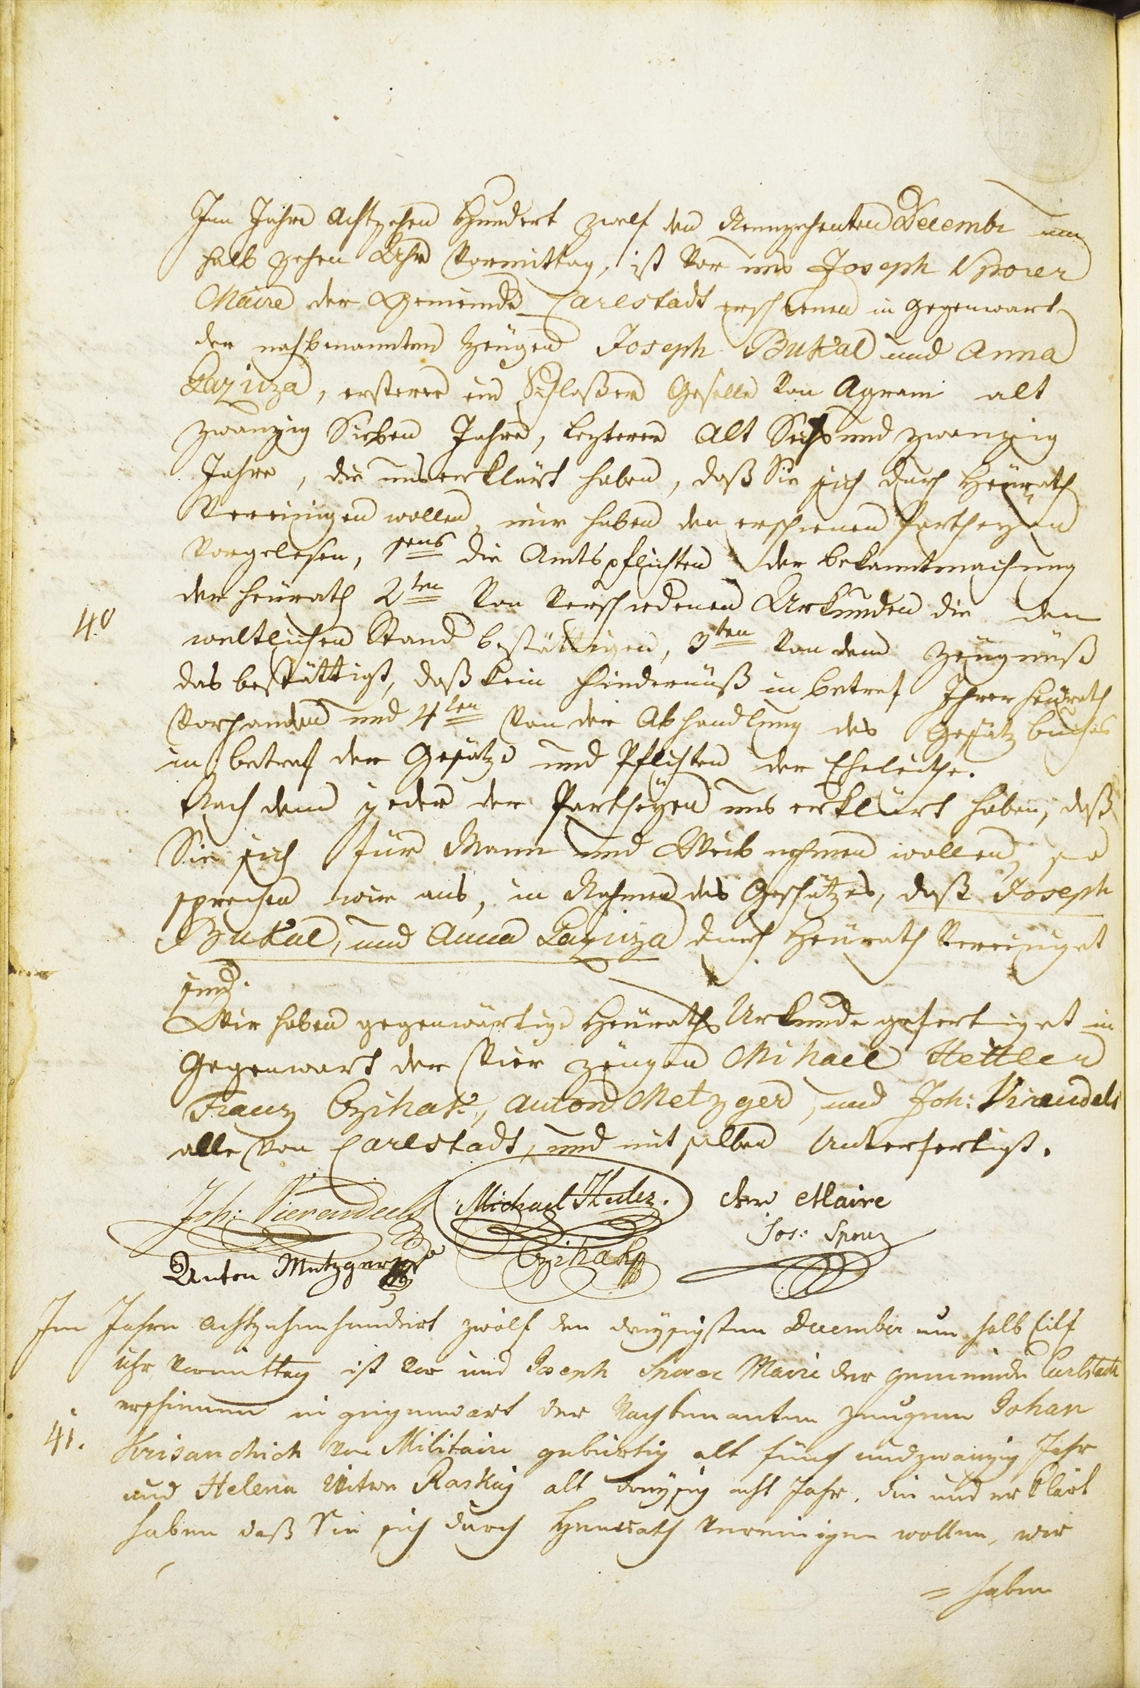 Im Jahre Achtzehen Hundert zwelf den Neunzehenten Decembr um
halb zehen Uhr Vormittag, ist Vor uns Joseph Sporer
Maire der Gemeinde Carlstadt erschienen in gegenwart
der nachbenannten Zeugen Joseph Bukal und Anna
Lazuza, ersterer ein Schloßer Geselle Von Agram alt
zwanzig Sieben Jahre, lezterer Alt Sechs und zwanzig
Jahre, die uns erklärt haben, daß Sie sich durch Heürath
Vereinigen wollen, wir haben den erschienen Partheyen
Vorgelesen, 1tens die Amtspflichten der bekanntmachung
der heürath 2ten Von Verschiedenen Urkunden die den
40
weltlichen Stand bestättigen, 3ten Von dem Zeugnüß
das bestättigt, daß kein Hindernüß in betref Ihrer heürath
Vorhanden und 4ten Von der Abhandlung des Gesätz buches
in betref der Gesätze und Pflichten der Eheleüthe.
Nach dem jeder der Partheyen uns erklärt haben, daß
Sie sich für Mann und Weib nehmen wollen, so
sprechen wir aus, in Nahmen des Geschätzes, daß Joseph
Bukal, und Anna Lazuza durch Heürath Vereiniget
sind.
Wir haben gegenwärtige Heüraths Urkunde gefertiget in
Gegenwart der Vier zeügen Mihael Hettler
Franz Czihak, Anton Metzger, und Joh: Virendels
alle Von Carlstadt, und mit selben Unterfertigt.
Joh: Vierendeels Michael Hetler. der Maire
Jos: Sporer
Anton Metzger Czihak
Im Jahre Achtzehenhundert zwölf den dreysigsten December um halb Eilf
uhr Vormittag ist Vor uns Joseph Sporer Maire der gemeinde Carlstadt
erschienen in gegenwart der Nachbenanten Zeugen Johan
41.
Krisanchich Vom Militaire gebürtig alt fünf und zwanzig Jahr
und Helena Witwe Raskaj alt dreysig acht Jahr, die uns erklärt
haben daß Sie sich durch Heurath Vereinigen wollen, wir
= haben